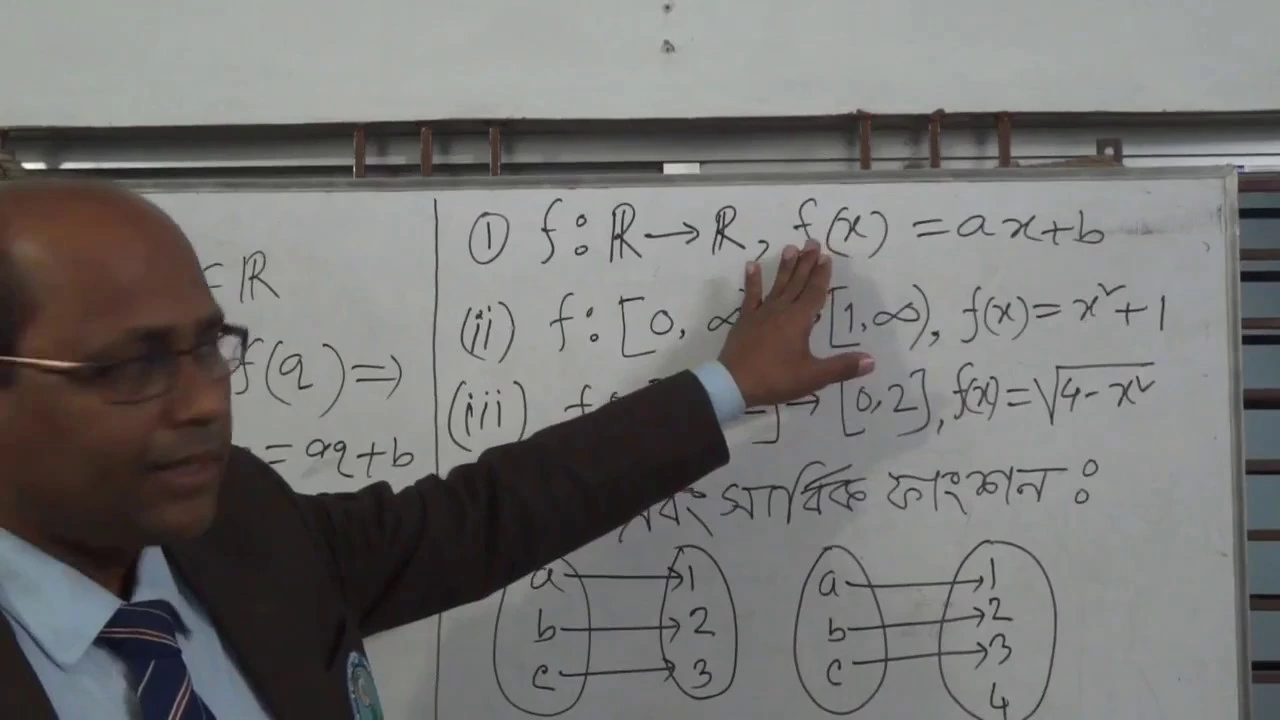 ∈ ℝ
f(q) ⇒
= aq+b
① f : ℝ → ℝ, f(x) = ax+b
(ii) f : [0, ∞) → [1, ∞), f(x) = x² + 1
(iii) f → [0, 2], f(x) = √(4 - x²)
এবং সার্বিক ফাংশন :
a → 1 a → 1
b → 2 b → 2
c → 3 c → 3
4